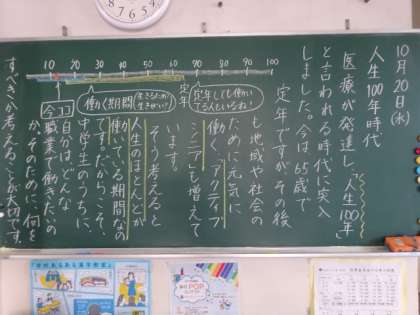 10月20日(水)
人生100年時代
医療が発達し、「人生100年」
と言われる時代に突入
しました。今は65歳で
定年ですが、その後
も地域や社会の
ために元気に
働く、アクティブ
シニアも増えて
います。
そう考えると
人生のほとんどが
働いている期間なの
です。だからこそ、
中学生のうちに、
自分は、どんな
職業で働きたいの
か、そのために、何を
すべきか考えることが大切です。
10 20 30 40 50 60 70 80 90 100
今ココ
働く期間
定年
定年しても働い
てる人もいるね!